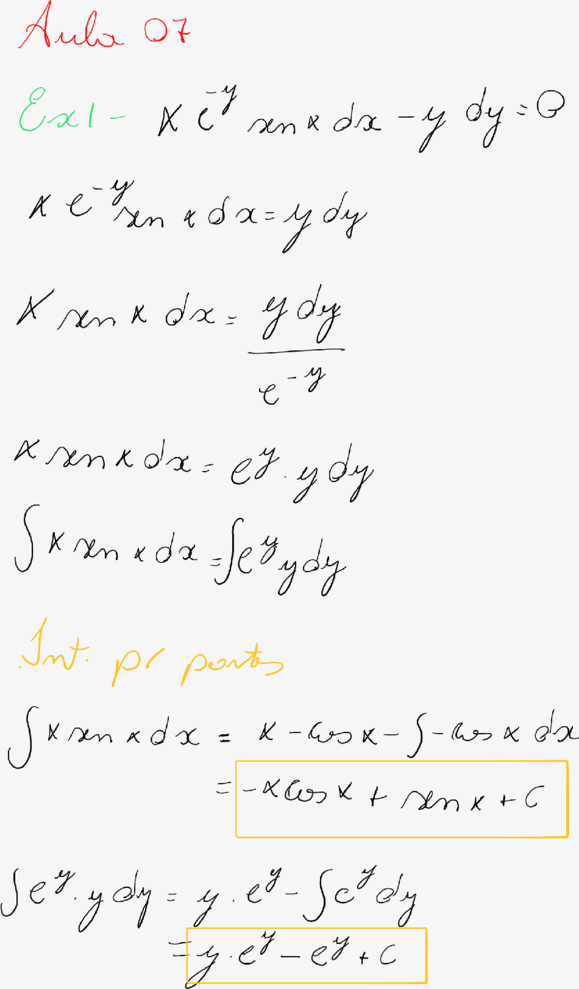 Aula 07
Ex1- x e^{-y} sen x dx - y dy = 0
x e^{-y} sen x dx = y dy
x sen x dx = \frac{y dy}{e^{-y}}
x sen x dx = e^y . y dy
∫ x sen x dx = ∫ e^y y dy
Int. pr partes
∫ x sen x dx = x - cos x - ∫ - cos x dx
= -x cos x + sen x + C
∫ e^y . y dy = y . e^y - ∫ e^y dy
= y . e^y - e^y + C